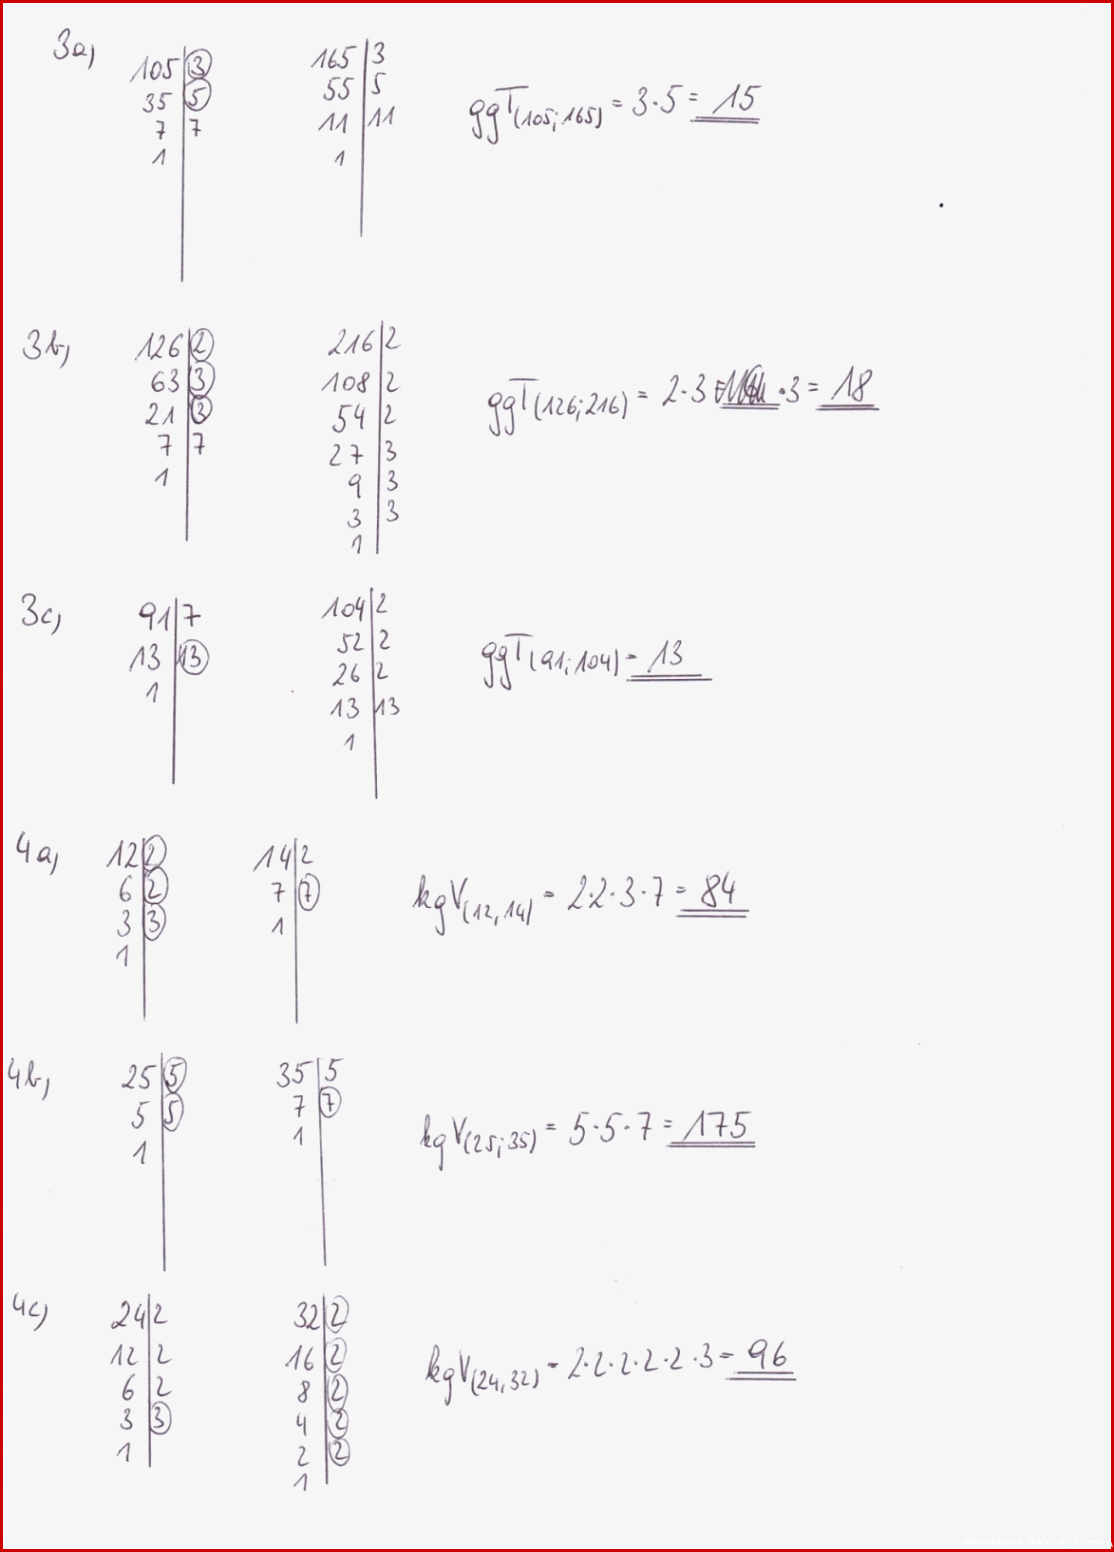 3a)
105 | 3
35 | 5
7 | 7
1
165 | 3
55 | 5
11 | 11
1
ggT(105; 165) = 3·5 = 15
3b)
126 | 2
63 | 3
21 | 3
7 | 7
1
216 | 2
108 | 2
54 | 2
27 | 3
9 | 3
3 | 3
1
ggT(126; 216) = 2·3 ·3 = 18
3c)
91 | 7
13 | 13
1
104 | 2
52 | 2
26 | 2
13 | 13
1
ggT(91; 104) = 13
4a)
12 | 2
6 | 2
3 | 3
1
14 | 2
7 | 7
1
kgV(12, 14) = 2·2·3·7 = 84
4b)
25 | 5
5 | 5
1
35 | 5
7 | 7
1
kgV(25; 35) = 5·5·7 = 175
4c)
24 | 2
12 | 2
6 | 2
3 | 3
1
32 | 2
16 | 2
8 | 2
4 | 2
2 | 2
1
kgV(24, 32) = 2·2·2·2·2·3 = 96